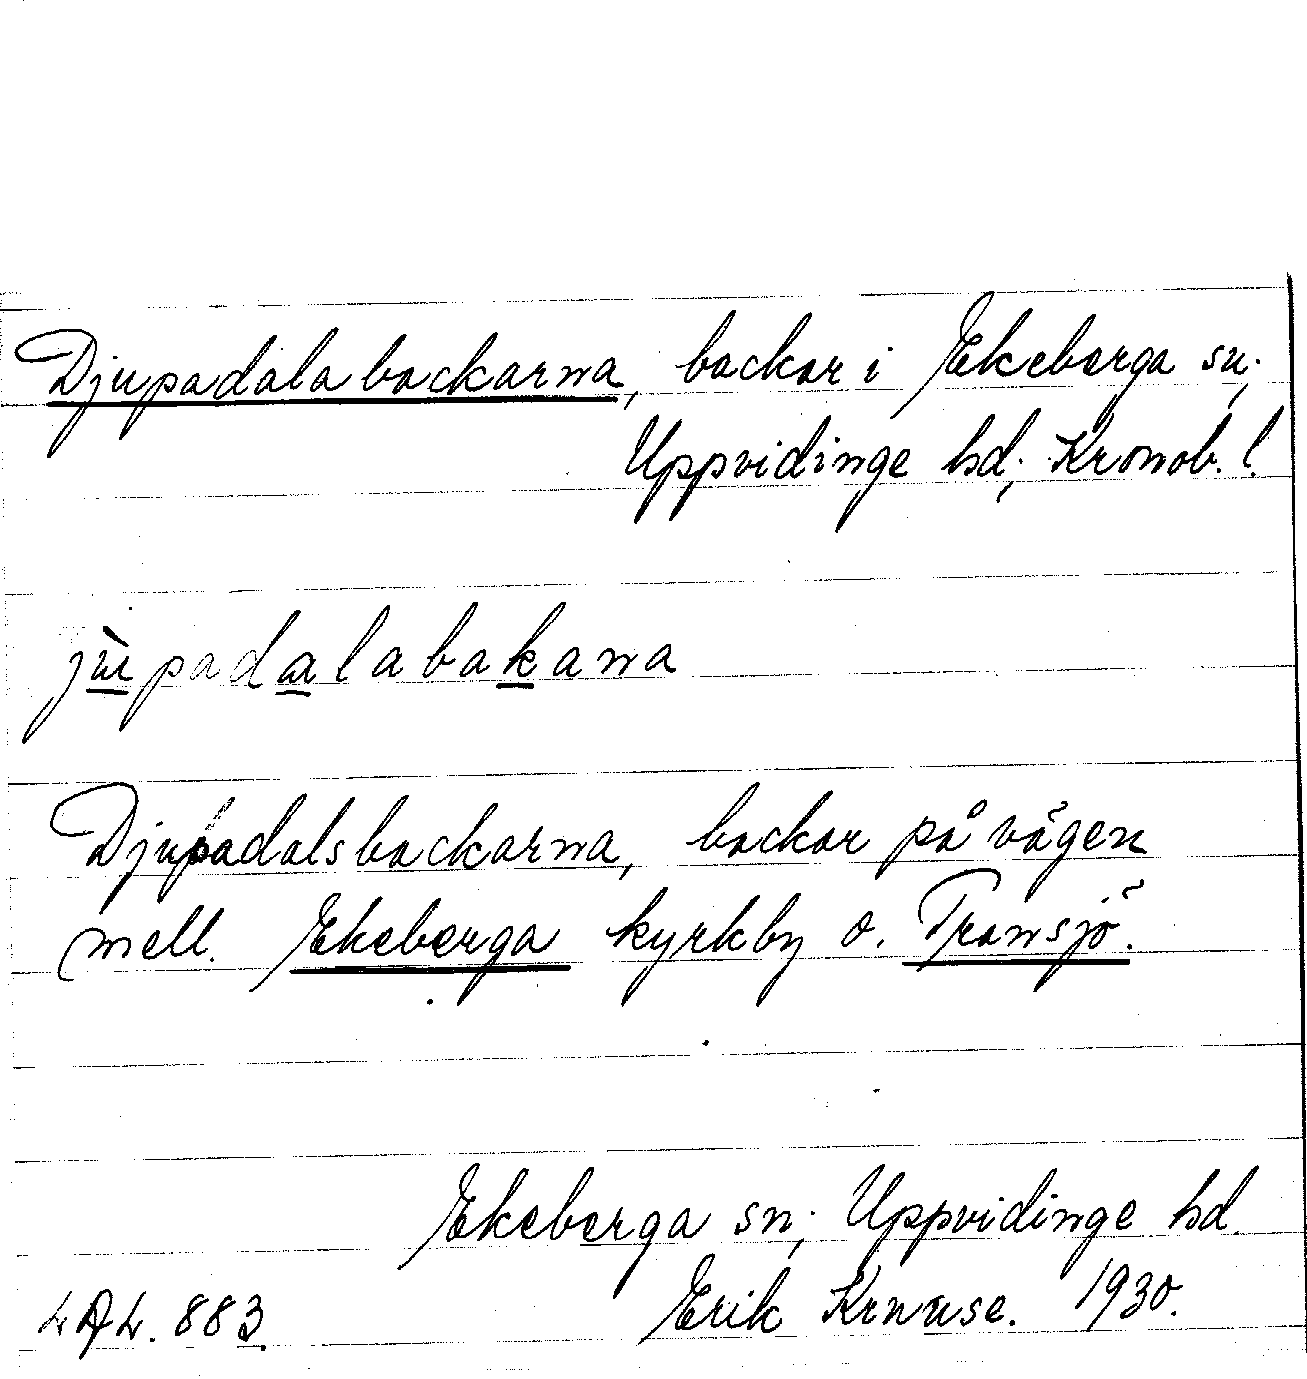 Djupadalabackarna, backar i Ekeberga sn.,
Uppvidinge hd., Kronob. l.
jùpadalabakana
Djupadalsbackarna, backar på vägen
mell. Ekeberga kyrkby o. Transjö.
Ekeberga sn., Uppvidinge hd.
LAL. 883. Erik Kruuse. 1930.